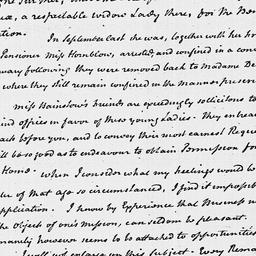 a respectable widow Lady there, for the Ben
ation.
In September last she was, together with her
Pensioner Miss Hornblow, arrested, and confined in a conv
uary following they were removed back to Madame De
where they still remain confined in the manner prescri
Miss Hainslow's friends are exceedingly sollicitous to
ind offices in favor of these young Ladies. They entrea
before you, and to convey their most earnest Reque
ill be so good as to endeavour to obtain Permission for
Home. When I consider what my feelings would be
of that age so circumstanced, I find it impossib
pplication. I know by Experience that Business
the object of one's mission, can seldom be pleasant.
manity however seems to be attached to opportunities
I will not enlarge upon this Subject. Every Rema